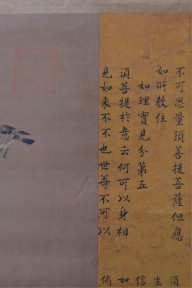 不可思量須菩提菩薩但應
如所教住
如理實見分第五
須菩提於意云何可以身相
見如來不不也世尊不可以
生
信
如